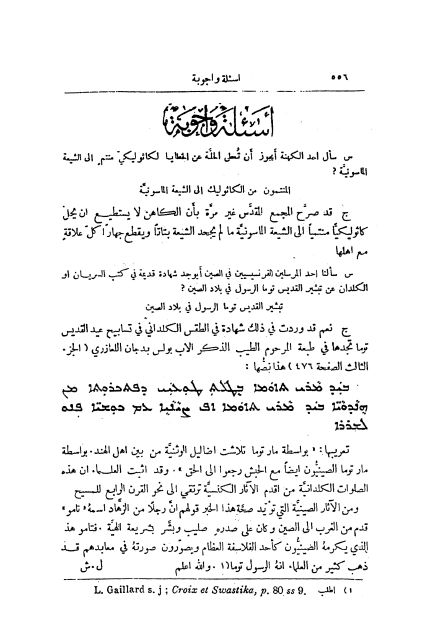 ٥٥٦ اسئلة واجوبة
أسئلة واجوبة
س سأل احد الكهنة أيجوز أن تُعطى الحلة عن الخطايا لكاثوليكيّ منتم الى الشيعة
الماسونيَّة ؟
المنتمون من الكاثوليك الى الشيعة الماسونيَّة
ج قد صرَّح المجمع المقدَّس غير مرَّة بأن الكاهن لا يستطيع ان يحلّ
كاثوليكيًّا منتسباً الى الشيعة الماسونيَّة ما لم يجحد الشيعة بتاتاً ويقطع جهاراً كلّ علاقةٍ
مع اهلها
س سألنا احد المرسلين الفرنسيسيين في الصين أيوجد شهادة قديمة في كتب السريان او
الكلدان عن تبشير القديس توما الرسول في بلاد الصين ؟
تبشير القديس توما الرسول في بلاد الصين
ج نعم قد وردت في ذلك شهادة في الطقس الكلدانيّ في تسابيح عيد القديس
توما تجدها في طبعة المرحوم الطيب الذكر الاب بولس بدجان اللعازري (الجزء
الثالث الصفحة ٤٧٦) هذا نصُّها :
ܒܝܕ ܡܪܝ ܬܐܘܡܐ
ܒܝܕ ܡܪܝ ܬܐܘܡܐ ܐܦ
تعريبها : « بواسطة مار توما تلاشت اضاليل الوثنيَّة من بين اهل الهند . بواسطة
مار توما الصينيُّون ايضاً مع الحبش رجعوا الى الحق » . وقد اثبت العلماء ان هذه
الصلوات الكلدانيَّة من اقدم الآثار الكنسيَّة ترتقي الى نحو القرن الرابع للمسيح
ومن الآثار الصينيَّة التي تؤيّد صحَّة هذا الخبر قولهم ان رجلًا من الزهَّاد اسمهُ « تامو »
قدم من الغرب الى الصين وكان على صدره صليب وبشَّر بشريعة الهيَّة . فتامو هذا
الذي يكرمهُ الصينيُّون كأحد الفلاسفة العظام ويصوّرون صورتهُ في معابدهم قد
ذهب كثير من العلماء انهُ الرسول توما (١ . والله اعلم ل . ش
١) اطلب L. Gaillard s. j ; Croix et Swastika, p. 80 ss 9.